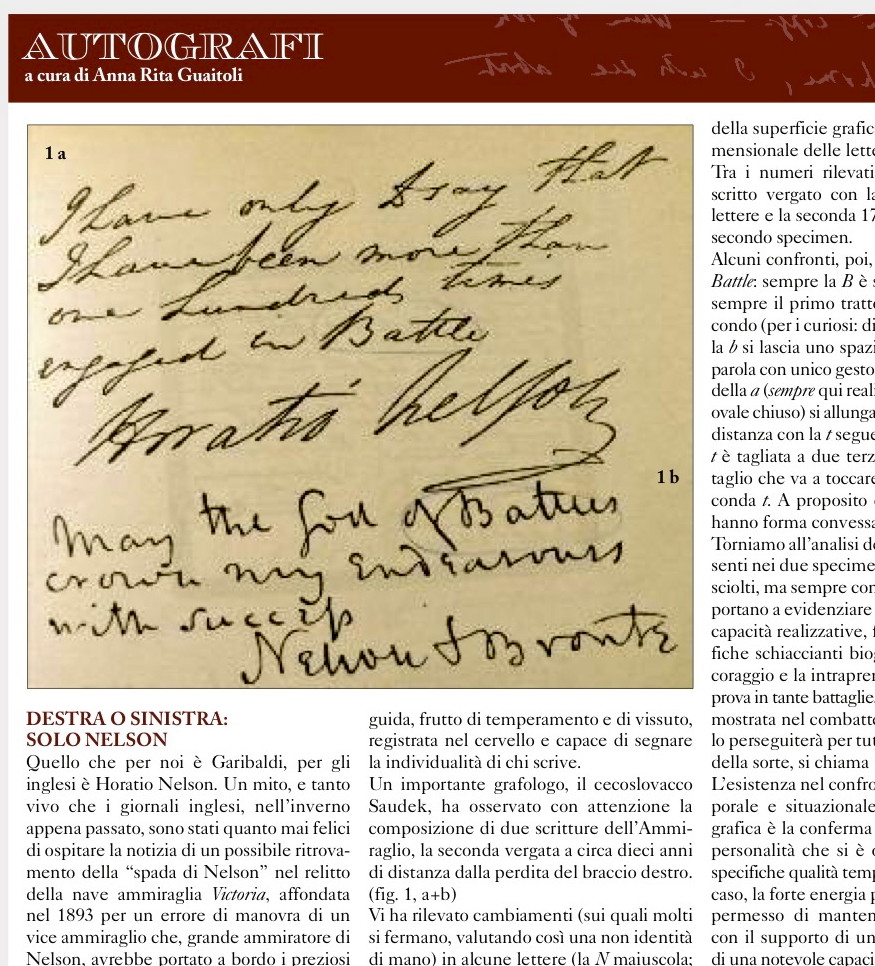 AUTOGRAFI
a cura di Anna Rita Guaitoli
1 a
I have only to say that
I have been more than
one hundred times
engaged in Battle
Horatio Nelson
1 b
May the God of Battles
crown my Endeavours
with success
Nelson & Bronte
DESTRA O SINISTRA:
SOLO NELSON
Quello che per noi è Garibaldi, per gli
inglesi è Horatio Nelson. Un mito, e tanto
vivo che i giornali inglesi, nell'inverno
appena passato, sono stati quanto mai felici
di ospitare la notizia di un possibile ritrova-
mento della “spada di Nelson” nel relitto
della nave ammiraglia Victoria, affondata
nel 1893 per un errore di manovra di un
vice ammiraglio che, grande ammiratore di
Nelson, avrebbe portato a bordo i preziosi
guida, frutto di temperamento e di vissuto,
registrata nel cervello e capace di segnare
la individualità di chi scrive.
Un importante grafologo, il cecoslovacco
Saudek, ha osservato con attenzione la
composizione di due scritture dell'Ammi-
raglio, la seconda vergata a circa dieci anni
di distanza dalla perdita del braccio destro.
(fig. 1, a+b)
Vi ha rilevato cambiamenti (sui quali molti
si fermano, valutando così una non identità
di mano) in alcune lettere (la N maiuscola;
della superficie grafic
mensionale delle lette
Tra i numeri rilevati
scritto vergato con la
lettere e la seconda 17
secondo specimen.
Alcuni confronti, poi,
Battle: sempre la B è s
sempre il primo tratto
condo (per i curiosi: di
la b si lascia uno spazi
parola con unico gesto
della a (sempre qui reali
ovale chiuso) si allunga
distanza con la t segue
t è tagliata a due terz
taglio che va a toccare
conda t. A proposito
hanno forma convessa
Torniamo all'analisi de
senti nei due specime
sciolti, ma sempre con
portano a evidenziare
capacità realizzative, f
fiche schiaccianti biog
coraggio e la intrapren
prova in tante battaglie
mostrata nel combatte
lo perseguiterà per tut
della sorte, si chiama
L'esistenza nel confro
porale e situazionale
grafica è la conferma
personalità che si è
specifiche qualità temp
caso, la forte energia p
permesso di manten
con il supporto di un
di una notevole capaci